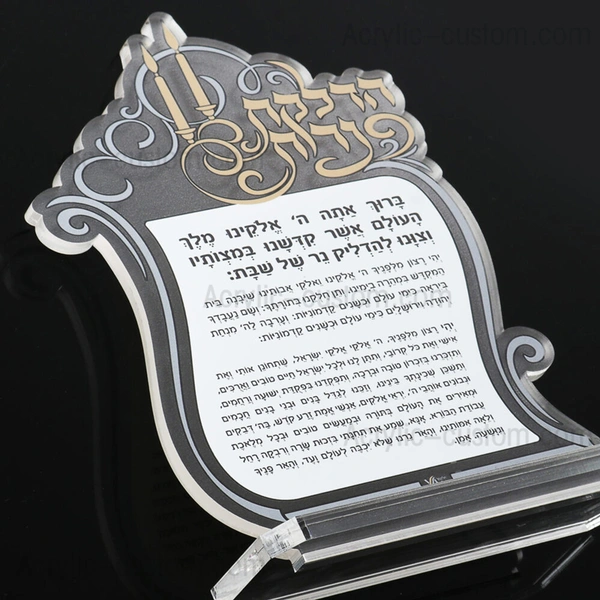 Acrylic-custom.com
הדלקת
נרות
בָּרוּךְ אַתָּה ה' אֱלֹקֵינוּ מֶלֶךְ
הָעוֹלָם אֲשֶׁר קִדְּשָׁנוּ בְּמִצְוֹתָיו
וְצִוָּנוּ לְהַדְלִיק נֵר שֶׁל שַׁבָּת:
יְהִי רָצוֹן מִלְּפָנֶיךָ ה' אֱלֹקֵינוּ וֵאלֹקֵי אֲבוֹתֵינוּ שֶׁיִּבָּנֶה בֵּית
הַמִּקְדָּשׁ בִּמְהֵרָה בְיָמֵינוּ
וְשָׁם נַעֲבָדְךָ
בְּיִרְאָה כִּימֵי עוֹלָם וּכְשָׁנִים קַדְמוֹנִיּוֹת: וְעָרְבָה לַה' מִנְחַת
יְהוּדָה וִירוּשָׁלָיִם כִּימֵי עוֹלָם וּכְשָׁנִים קַדְמוֹנִיּוֹת:
יְהִי רָצוֹן מִלְּפָנֶיךָ, ה' אֱלֹקַי אֱלֹקֵי יִשְׂרָאֵל, שֶׁתְּחוֹנֵן אוֹתִי וְאֶת
אִישִׁי וְאֶת כָּל קְרוֹבַי, וְתִתֶּן לָנוּ וּלְכָל יִשְׂרָאֵל חַיִּים טוֹבִים וַאֲרֻכִּים,
וְתִזְכְּרֵנוּ בְּזִכְרוֹן טוֹבָה וּבְרָכָה, וְתִפְקְדֵנוּ בִּפְקֻדַּת יְשׁוּעָה וְרַחֲמִים,
וְתַשְׁכֵּן שְׁכִינָתְךָ בֵּינֵינוּ, וְזַכֵּנוּ לְגַדֵּל בָּנִים וּבְנֵי בָנִים חֲכָמִים
וּנְבוֹנִים אוֹהֲבֵי ה', יִרְאֵי אֱלֹקִים, אַנְשֵׁי אֱמֶת זֶרַע קֹדֶשׁ, בַּה' דְּבֵקִים
וּמְאִירִים אֶת הָעוֹלָם בַּתּוֹרָה וּבְמַעֲשִׂים טוֹבִים וּבְכָל מְלֶאכֶת
עֲבוֹדַת הַבּוֹרֵא. אָנָּא שְׁמַע אֶת תְּחִנָּתִי בִּזְכוּת שָׂרָה וְרִבְקָה רָחֵל
וְלֵאָה אִמּוֹתֵינוּ, וְהָאֵר נֵרֵנוּ שֶׁלֹּא יִכְבֶּה לְעוֹלָם וָעֶד, וְהָאֵר פָּנֶיךָ